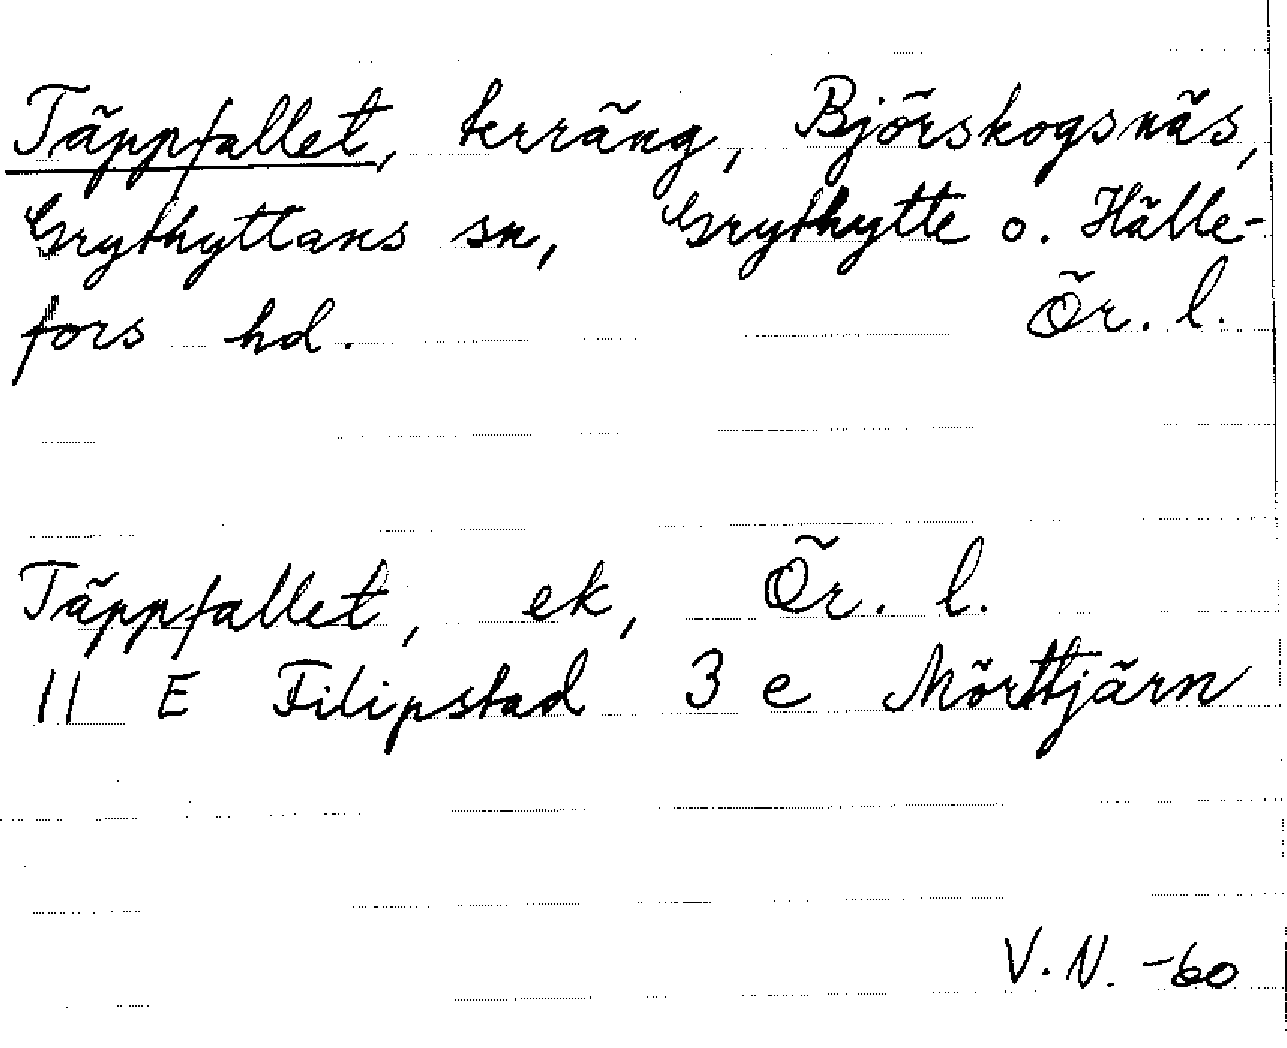 Täppfallet, terräng, Björskogsnäs,
Grythyttans sn, Grythytte o. Hälle-
fors hd. Ör. l.
Täppfallet, ek, Ör. l.
11 E Filipstad 3 e Mörttjärn
V. N. -60